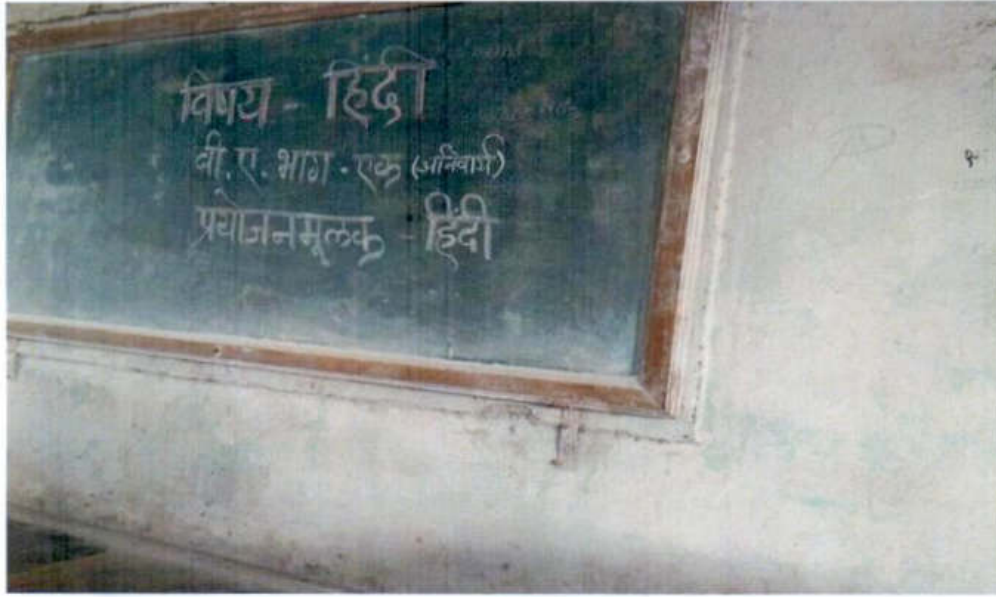 विषय - हिंदी
बी.ए. भाग - एक (अनिवार्य)
प्रयोजनमूलक - हिंदी